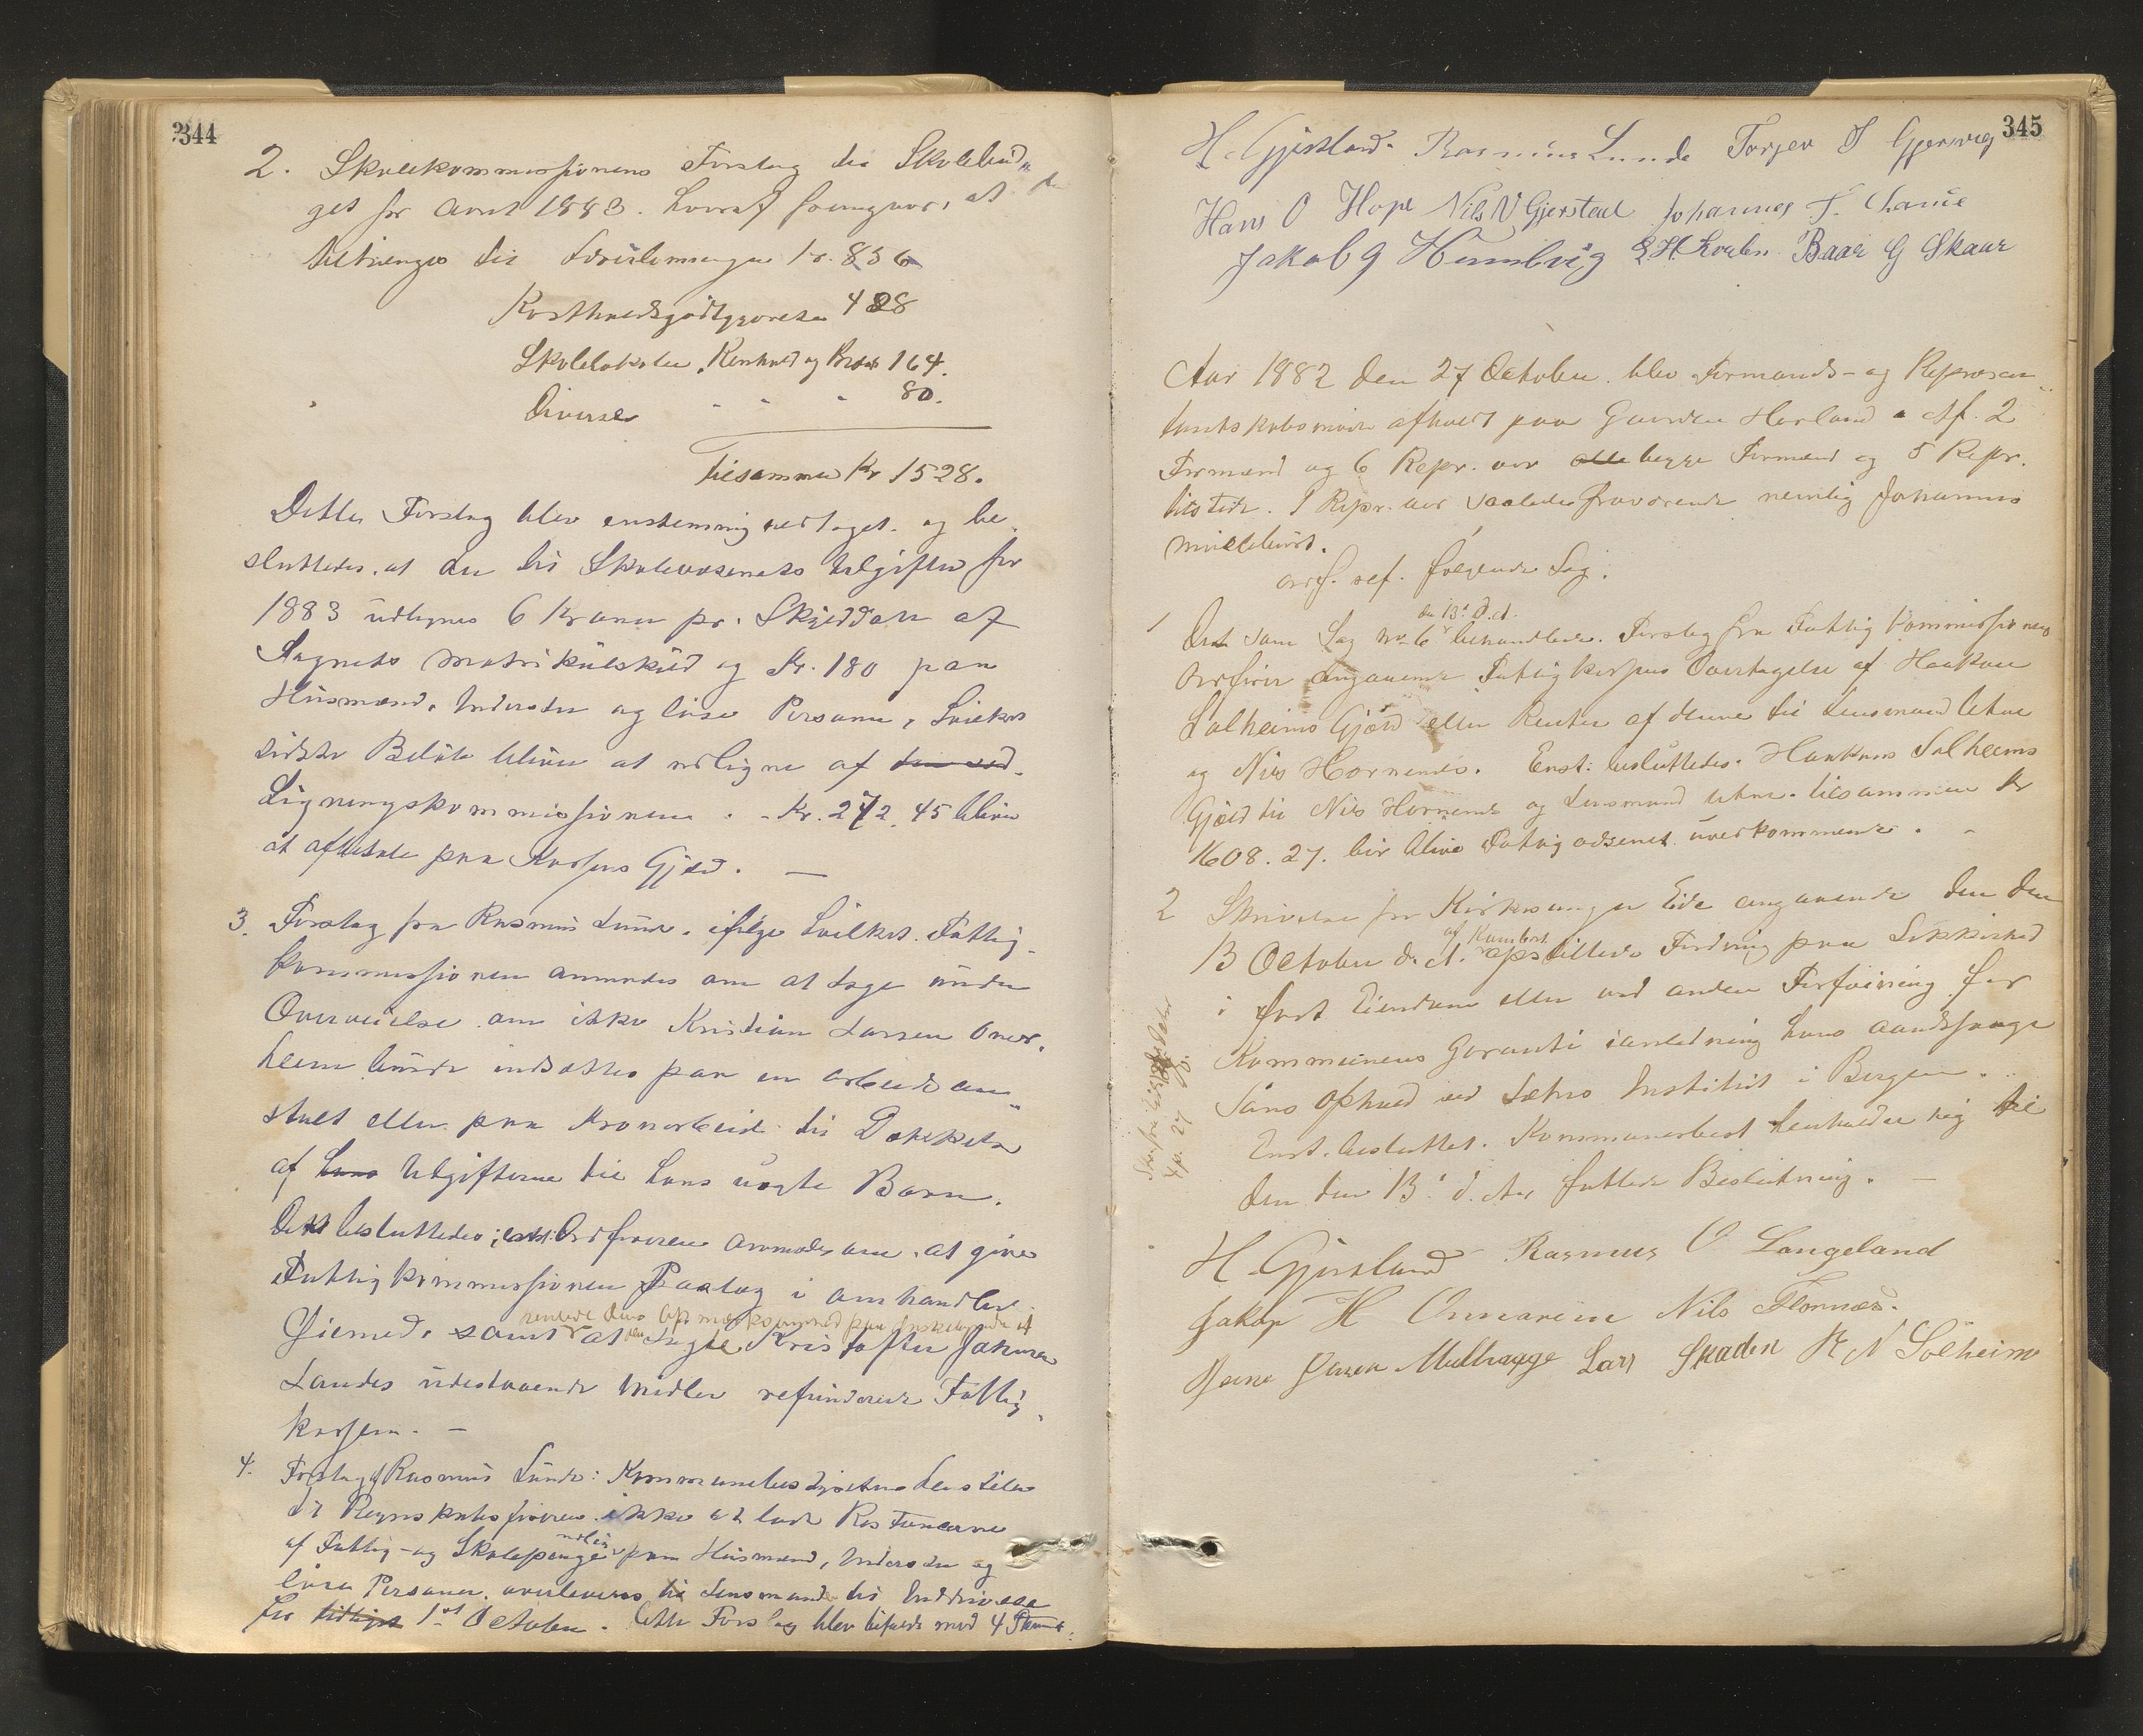 344
2. Skolekommissionens Forslag til Skolebud„
get for Aaret 1883. hvoraf fremgaar, at der
tiltrænges til Lærerlønninger Kr. 856
Kosthuldsgodtgjørelse 428
Skolelokaler, Renhold og Brænde 164.
Diverse - - - 80.
Tilsammen Kr 1528.
Dette Forslag blev enstemmig vedtaget. og be„
sluttedes, at der til Skolevæsenets Udgifter for
1883 udlignes 6 Kroner pr. Skjelddaler af
Sognets Matrikulskyld og Kr. 180 paa
Husmænd, Inderster og løse Personer, hvilket
sidste Beløb bliver at udligne af den ved
Ligningskommissionen. - Kr. 272. 45 bliver
at afbetale paa Kassens Gjæld. —
3. Forslag fra Rasmus Lunde. ifølge hvilket Fattig-
kommissionen anmodes om at tage under
Overveielse om ikke Kristian Larsen Over„
heim burde indsættes paa en Arbeidsan„
stalt eller paa Tvangsarbeide til Dækkelse
af hans Udgifterne til hans uægte Barn.
Det besluttedes; enst. Ordføreren anmodes om, at give
Fattigkommissionen Paalæg i omhandlede
Øiemed, samt at Kristoffer Johnsen
henlede dens Opmærksomhed paa Ønskeligheden af
Landes udestaaende Midler refunderede Fattig„
kassen. —
4. Forslag af Rasmus Lunde: Kommunebestyrelsen henstiller
til Regnskabsføreren ikke at lade Restancerne
af Fattig- og Skolepenge udlignet paa Husmænd, Inderster og
løse Personer, overleveres til Lensmanden til Inddrivelse
før tidligst 1st October. Dette Forslag blev bifaldt med 4 Stemmer
345
H. Gjistland. Rasmus Lunde Torger T Gjersvig
Hans O Hope Nils N Gjerstad Johannes
Jakob G Humbrig Baar G Skaar
Aar 1882 den 27 October blev Formands- og Repræsen„
tantskabsmøde afholdt paa Gaarden Horland. Af 2
Formænd og 6 Repr. var alle begge Formænd og 5 Repr.
tilstede. 1 Repr. var saaledes fraværende nemlig Johannes
.
Ordf. ref. følgende Sag.
1 Den som Sag No 6 den 13de d.A. behandlede Forslag fra Fattigkommissionens
Ordfører angaaende Fattigkassens Overtagelse af Haakon
Solheims Gjæld eller Renter af denne til Lensmand
og Nils Hornenes. Enst. besluttedes. Haakons Solheims
Gjæld til Nils Hornenes og Lensmand tilsammen Kr
1608. 27. bør blive Fattigvæsenet uvedkommende. -
2 Skrivelse fra Kirkesanger Eide angaaende den den
13 October d. A. af Kombest. opstillede Fordring paa Sikkerhed
i fast Eiendom eller ved anden Forføining for
Kommunens Garanti i anledning hans aandssvage
Søns Ophold ved Institut i Bergen.
Enst. besluttet. Kommunerbest henholder sig til
den den 13de d. Aar fattede Beslutning. —
H. Gjistland Rasmus O Langeland
Jakop H Nils
Lars Skaden K N Solheim